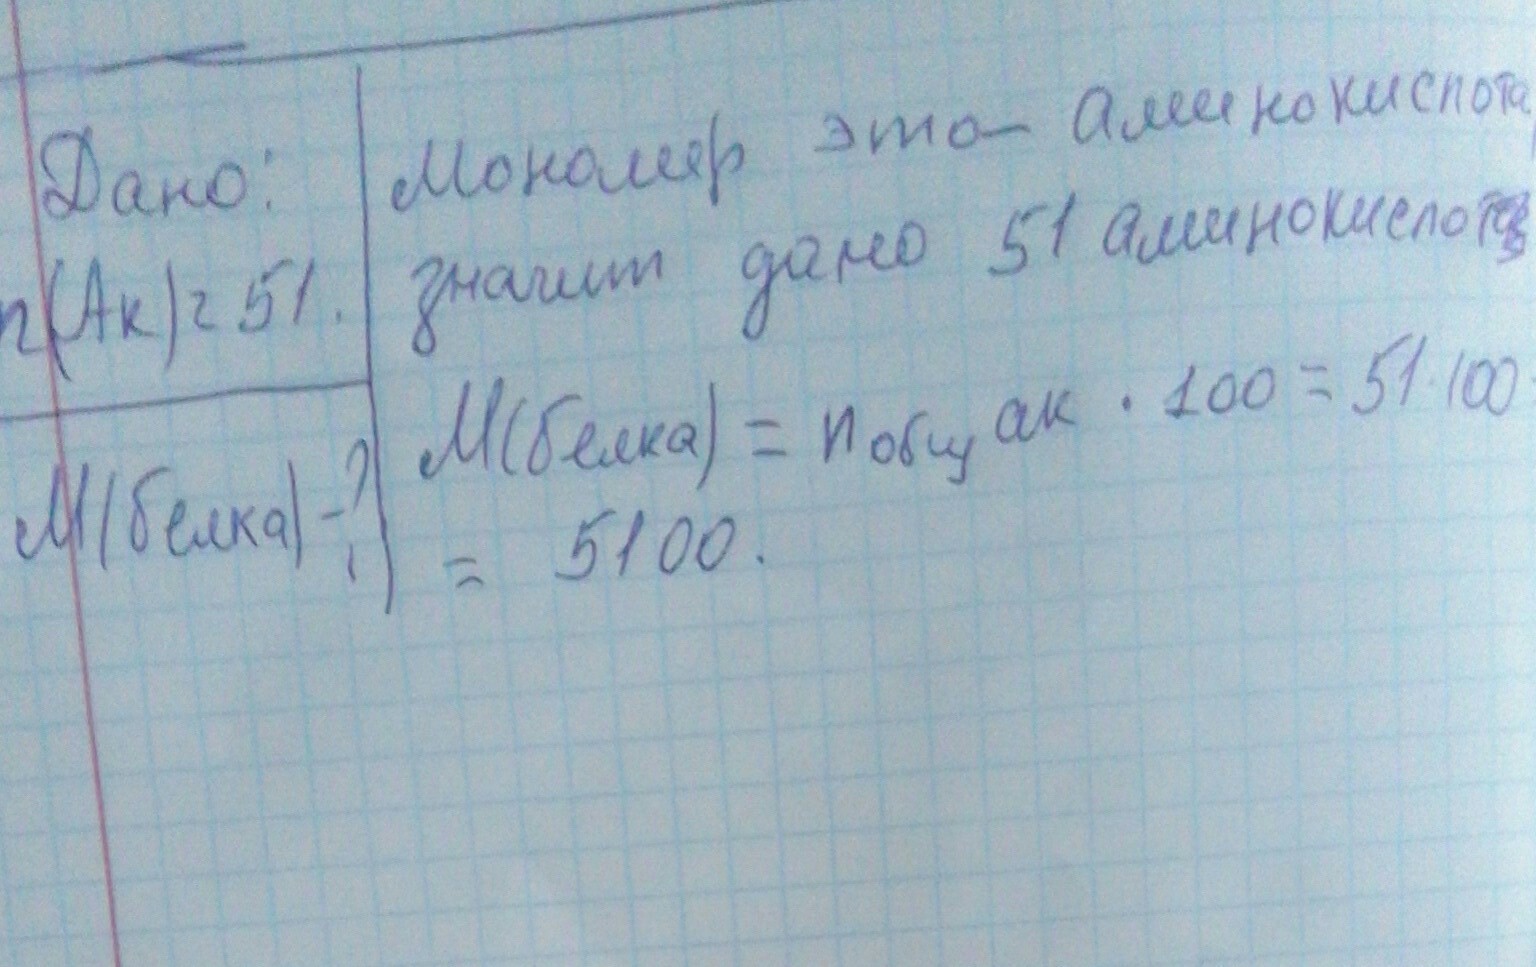 Дано:
n(Ак)=51.
М(белка)-?
Мономер это- аминокислота,
значит дано 51 аминокислота
М(белка) = nобщ ак · 100 = 51·100
= 5100.